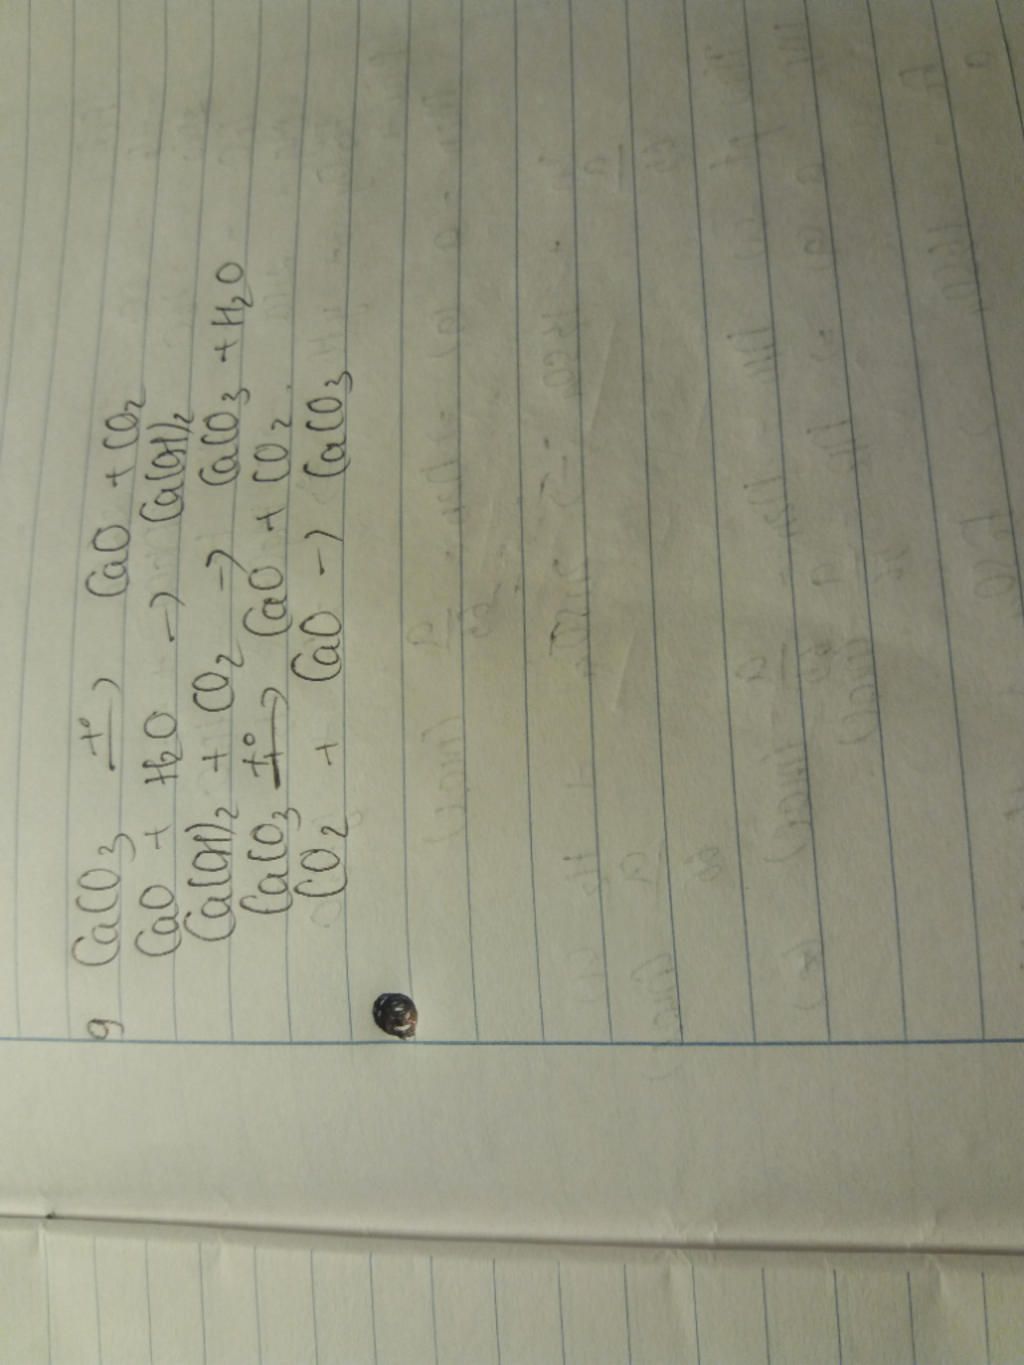 g CaCO₃ —t°→ CaO + CO₂
CaO + H₂O → Ca(OH)₂
Ca(OH)₂ + CO₂ → CaCO₃ + H₂O
CaCO₃ —t°→ CaO + CO₂
CO₂ + CaO → CaCO₃